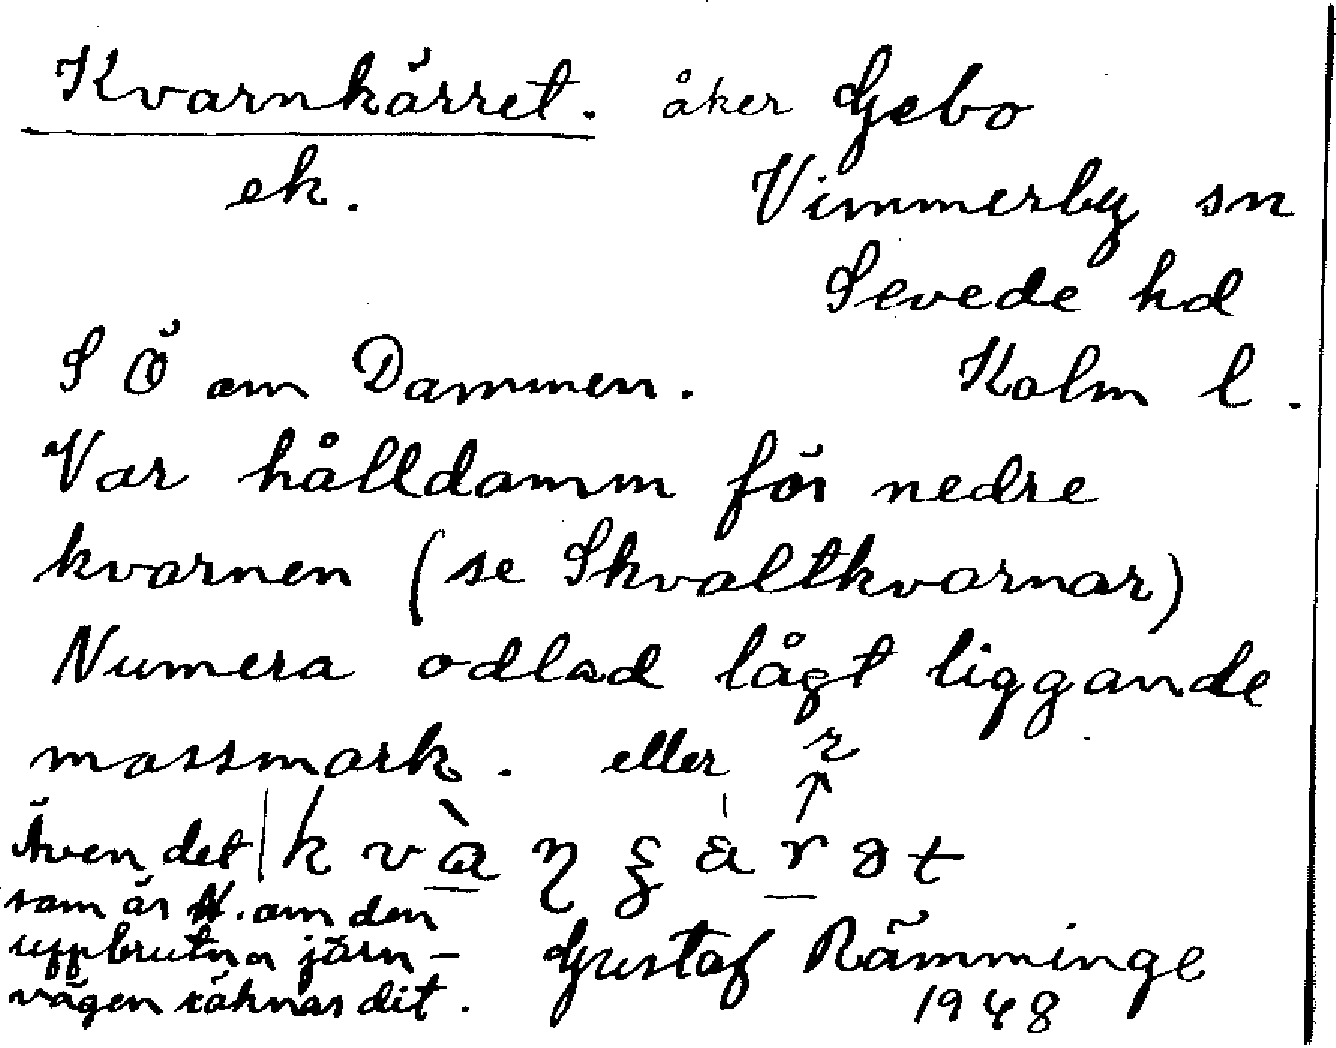 Kvarnkärret. åker Gebo
ek. Vimmerby sn
Sevede hd
S Ö om Dammen. Kalm l.
Var hålldamm för nedre
kvarnen (se Skvaltkvarnar)
Numera odlad lågt liggande
mossmark. eller r
Även det
som är N. om den
uppbrutna järn-
vägen räknas dit.
Gustaf Rämminge
1948